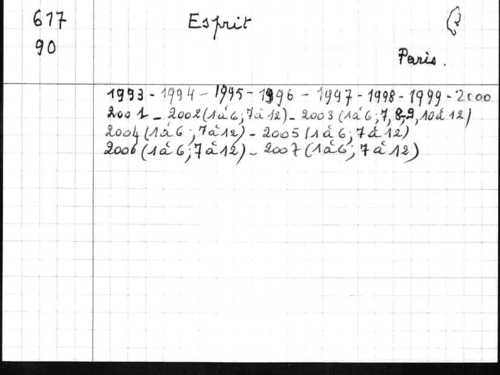 617 Esprit
90
Paris.
1993 - 1994 - 1995 - 1996 - 1997 - 1998 - 1999 - 2000
2001 - 2002 (1 à 6; 7 à 12) - 2003 (1 à 6; 7, 8-9, 10 à 12)
2004 (1 à 6; 7 à 12) - 2005 (1 à 6; 7 à 12)
2006 (1 à 6; 7 à 12) - 2007 (1 à 6; 7 à 12)